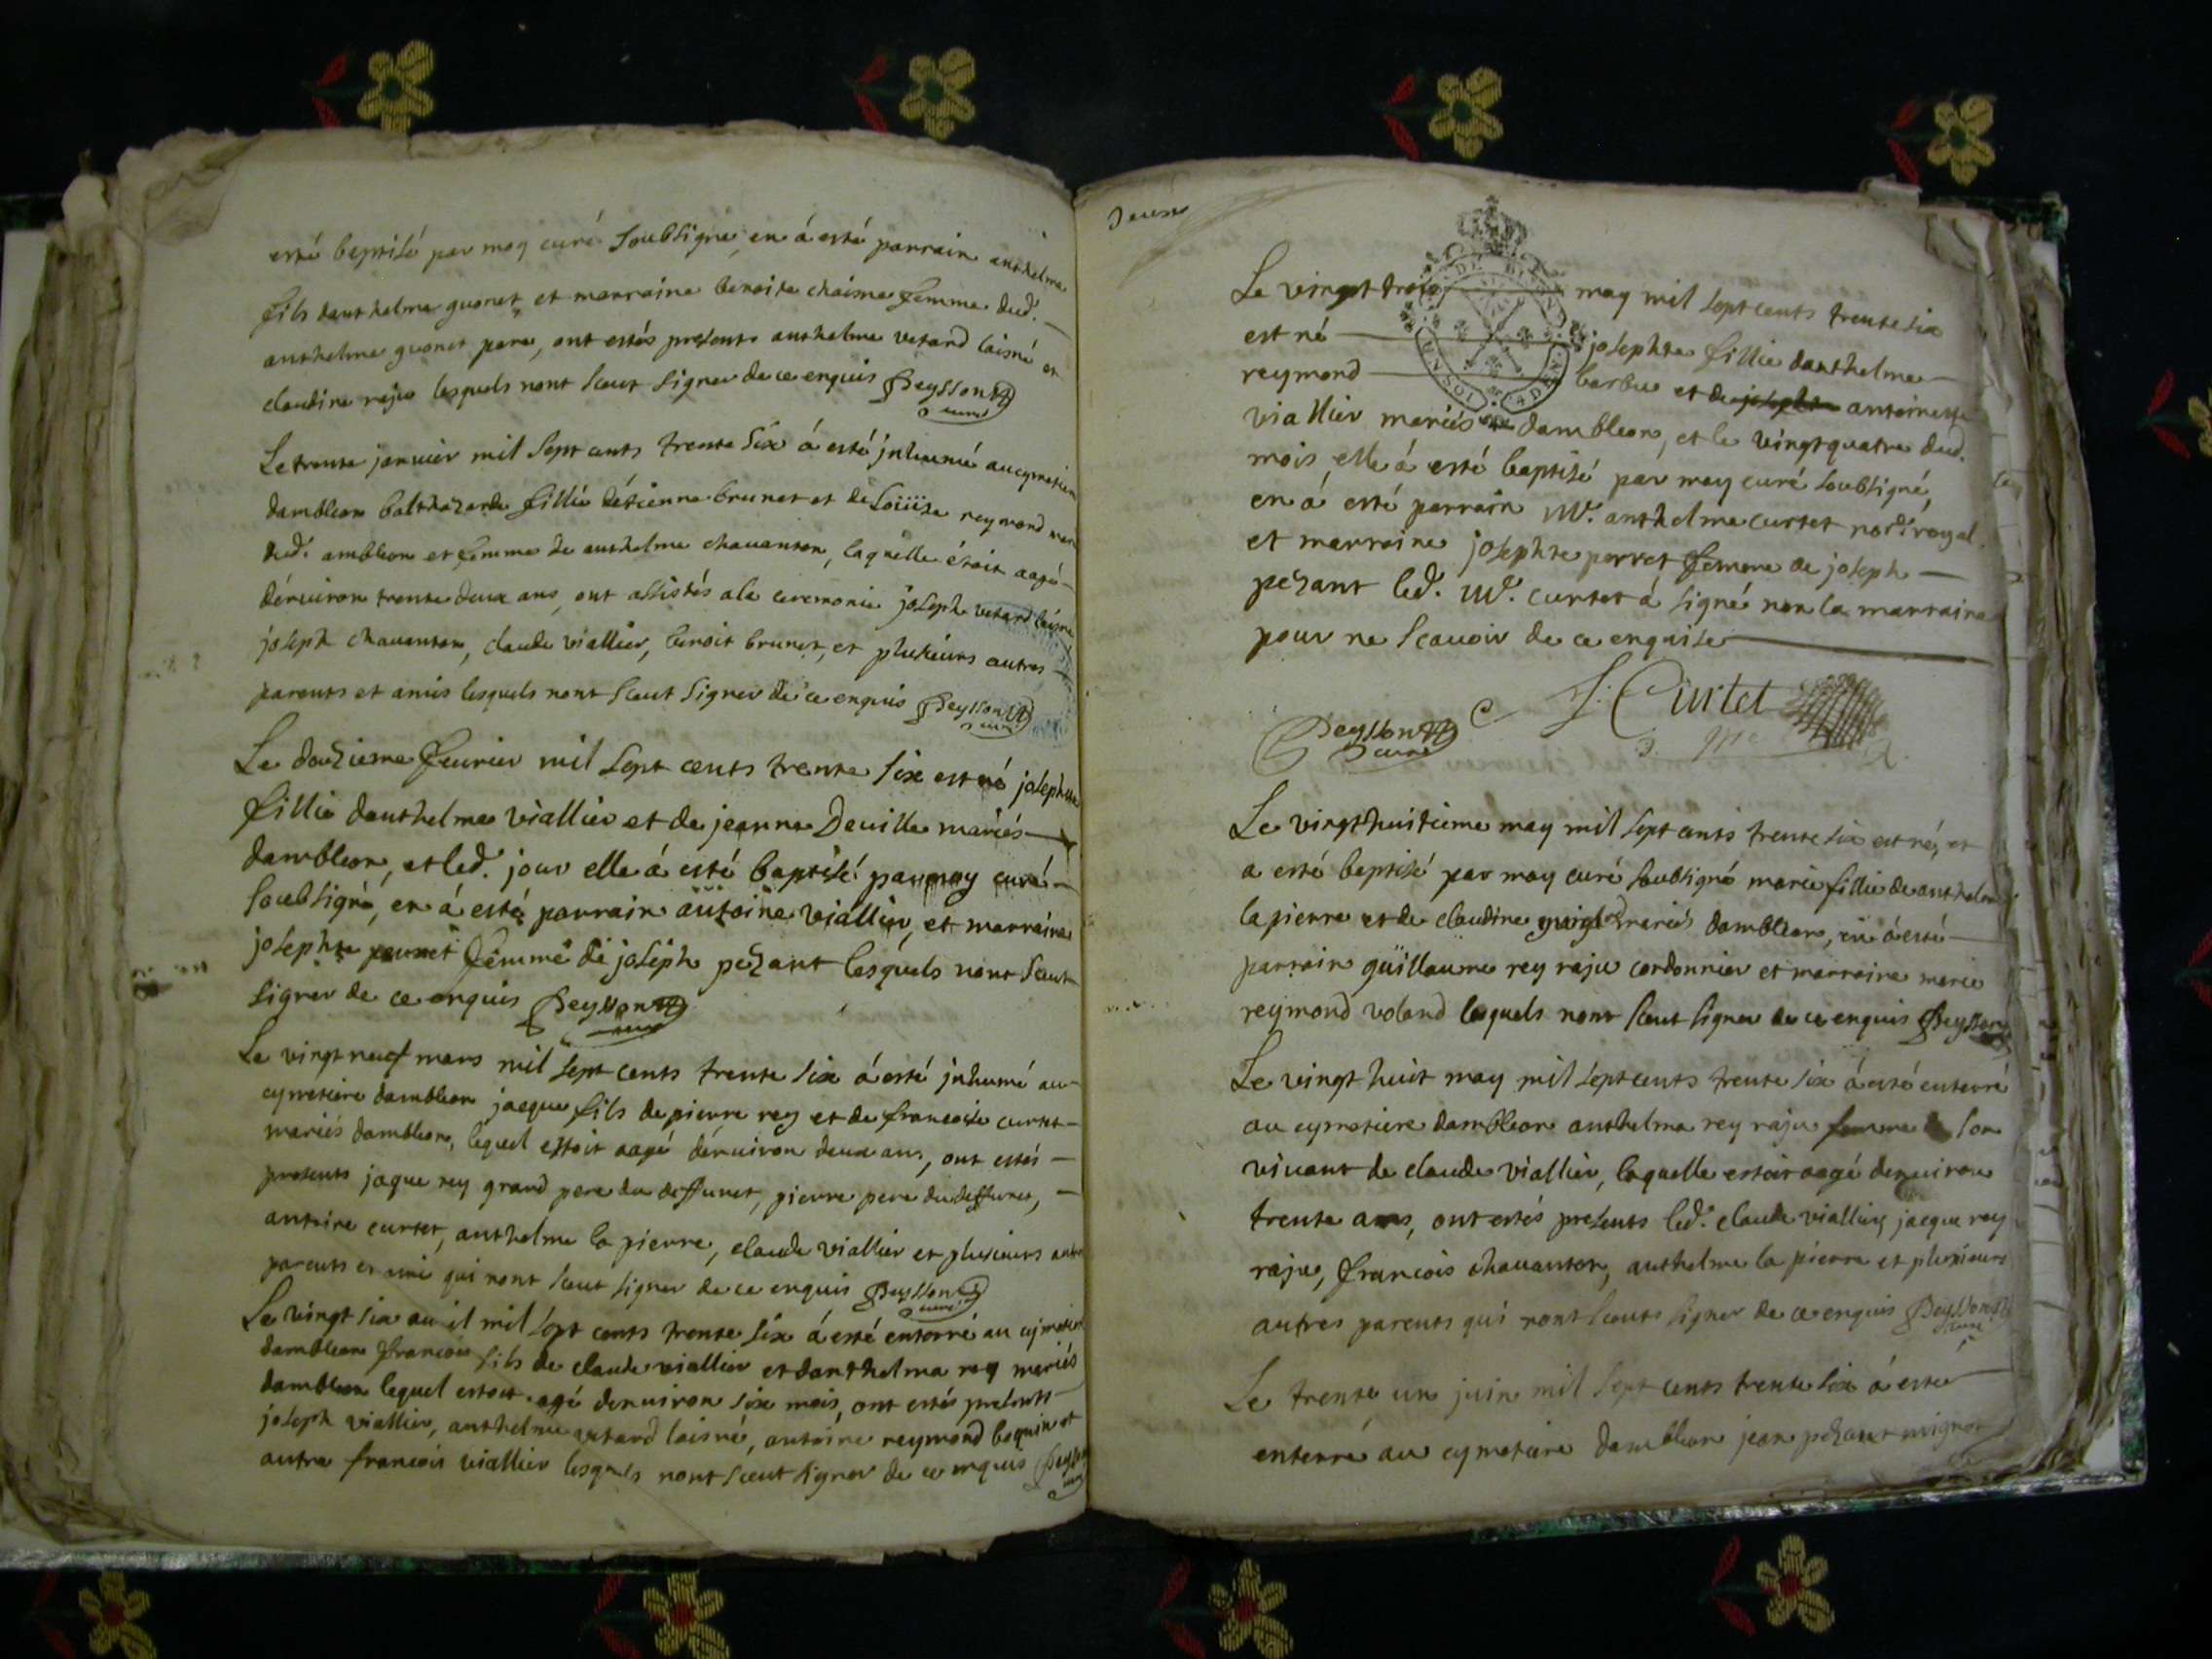 esté baptisé par moy curé soubsigné, en á esté parrain anthelme
fils danthelme guonet, et marraine benoite chaisne femme dud.
anthelme guonet pere, ont estés presents anthelme vetard laisné et
claudine raju lesquels nont sceut signer de ce enquis Peysson
curé
Le trente janvier mil sept cents trente six á esté jnhumé au cymetiere
dambleon balthazarde fillie détienne brunet et de Loüise reymond
dud. ambleon et femme de anthelme chauanton, laquelle étoit aagé
dénuiron trente deux ans, ont assistés ala ceremonie joseph vetard laisné
joseph chauanton, claude viallier, benoit brunet, et plusieurs autres
parents et amis lesquels nont sceut signer de ce enquis Peysson
curé
Le douzieme feurier mil sept cents trente six est né josephte
fillie danthelme viallier et de jeanne Deuille mariés
dambleon, et led. jour elle á esté baptisé par moy curé
soubsigné, en á esté parrain antoine viallier, et marraine
josephte perret femme de joseph pezant lesquels nont sceut
signer de ce enquis Peysson
curé
Le vingt neuf mars mil sept cents trente six á esté jnhumé au
cymetiere dambleon jacque fils de pierre rey et de francoise curtet
mariés dambleon, lequel estoit aagé dénuiron deux ans, ont estés
presents jaque rey grand pere du deffunct, pierre pere du deffunct,
antoine curtet, anthelme la pierre, claude viallier et plusieurs autres
parents et ami qui nont sceut signer de ce enquis Peysson
curé
Le vingt six auril mil sept cents trente six á esté enterré au cymetiere
dambleon francois fils de claude viallier et danthelma rey mariés
dambleon lequel estoit agé denuiron six mois, ont estés presents
joseph viallier, anthelme vetard laisné, antoine reymond bequin et
autre francois viallier lesquels nont sceut signer de ce enquis Peysson
curé
Le vingt trois may mil sept cents trente six
est né josephte fillie danthelme
reymond barbue et de josephte antoinette
viallier mariés dambleon, et le vingt quatre dud.
mois, elle á esté baptisé par moy curé soubsigné,
en á esté parrain Mr. anthelme curtet nore. royal
et marraine josephte perret femme de joseph
pezant led. Mr. curtet á signé non la marraine
pour ne scauoir de ce enquise
Peysson curé Curtet
Le vingthuitieme may mil sept cents trente six est né, et
a esté baptisé par moy curé soubsigné marie fillie de anthelme
lapierre et de claudine mariés dambleon, en á esté
parrain guillaume rey raju cordonnier et marraine marie
reymond voland lesquels nont sceut signer de ce enquis Peysson
Le vingt huit may mil sept cents trente six á esté enterré
au cymetiere dambleon anthelma rey raju femme son
viuant de claude viallier, laquelle estoit aagé denuiron
trente ans, ont estés presents led. claude viallier, jacque rey
raju, francois chauanton, anthelme la pierre et plusieurs
autres parents qui nont sceuts signer de ce enquis Peysson
curé
Le trente un juin mil sept cents trente six á esté
enterré au cymetiere dambleon jean pezant